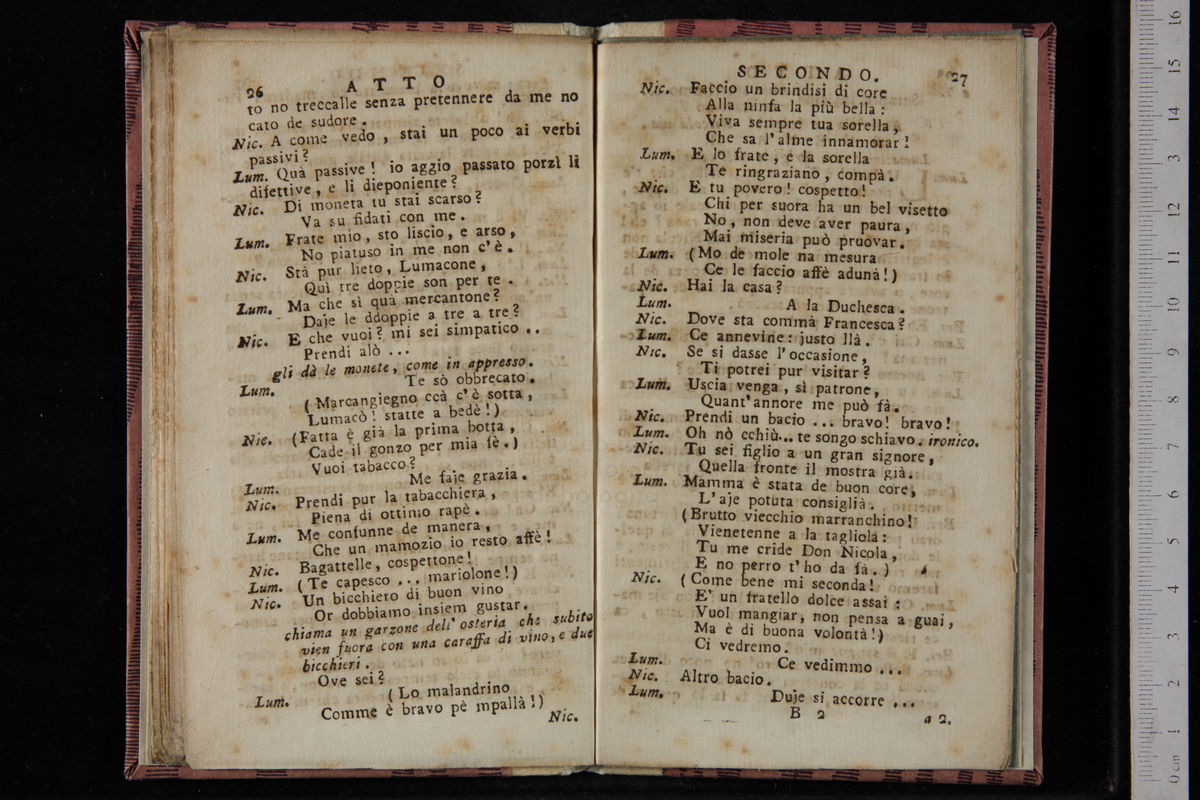 26 ATTO
to no treccalle senza pretennere da me no
cato de sudore.
Nic. A come vedo, stai un poco ai verbi
passivi?
Lum. Quà passive! io aggio passato porzì li
difettive, e li dieponiente?
Nic. Di moneta tu stai scarso?
Va su fidati con me.
Lum. Frate mio, sto liscio, e arso,
No piatuso in me non c'è.
Nic. Stà pur lieto, Lumacone,
Quì tre doppie son per te.
Lum. Ma che sì quà mercantone?
Daje le ddoppie a tre a tre?
Nic. E che vuoi? mi sei simpatico ..
Prendi alò ...
gli dà le monete, come in appresso.
Lum. Te sò obbrecato.
(Marcangiegno ccà c'è sotta,
Lumacò! statte a bedè!)
Nic. (Fatta è già la prima botta,
Cade il gonzo per mia fè.)
Vuoi tabacco?
Lum. Me faje grazia.
Nic. Prendi pur la tabacchiera,
Piena di ottimo rapè.
Lum. Me confunne de manera,
Che un mamozio io resto affè!
Nic. Bagattelle, cospettone!
Lum. (Te capesco ... mariolone!)
Nic. Un bicchiero di buon vino
Or dobbiamo insiem gustar.
chiama un garzone dell' osteria che subito
vien fuora con una caraffa di vino, e due
bicchieri.
Ove sei?
Lum. (Lo malandrino
Comme è bravo pè mpallà!)
Nic.
SECONDO. 27
Nic. Faccio un brindisi di core
Alla ninfa la più bella:
Viva sempre tua sorella,
Che sa l'alme innamorar!
Lum. E lo frate, e la sorella
Te ringraziano, compà.
Nic. E tu povero! cospetto!
Chi per suora ha un bel visetto
No, non deve aver paura,
Mai miseria può pruovar.
Lum. (Mo de mole na mesura
Ce le faccio affè adunà!)
Nic. Hai la casa?
Lum. A la Duchesca.
Nic. Dove sta commà Francesca?
Lum. Ce annevine: justo llà.
Nic. Se si dasse l'occasione,
Ti potrei pur visitar?
Lum. Uscia venga, sì patrone,
Quant'annore me può fà.
Nic. Prendi un bacio ... bravo! bravo!
Lum. Oh nò cchiù... te songo schiavo. ironico.
Nic. Tu sei figlio a un gran signore,
Quella fronte il mostra già.
Lum. Mamma è stata de buon core,
L'aje potuta consiglià.
(Brutto viecchio marranchino!
Vienetenne a la tagliola:
Tu me cride Don Nicola,
E no perro t'ho da fà.)
Nic. (Come bene mi seconda!
E' un fratello dolce assai:
Vuol mangiar, non pensa a guai,
Ma è di buona volontà!)
Ci vedremo.
Lum. Ce vedimmo ...
Nic. Altro bacio.
Lum. Duje si accorre ...
B 2 a 2.